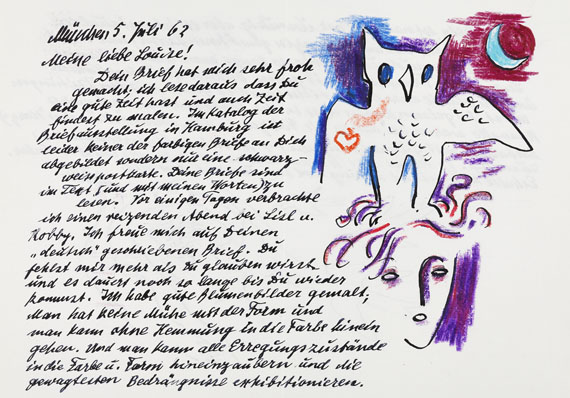 München 5. Juli 62
Meine liebe Louise!
Dein Brief hat mich sehr froh
gemacht; ich lese daraus dass Du
eine gute Zeit hast und auch Zeit
findest zu malen. Im Katalog der
Briefausstellung in Hamburg ist
leider keiner der farbigen Briefe an Dich
abgebildet sondern nur eine schwarz-
weisspostkarte. Deine Briefe sind
im Text (und mit meinen Worten) zu
lesen. Vor einigen Tagen verbrachte
ich einen reizenden Abend bei Lisl u.
Hobby. Ich freue mich auf Deinen
„deutsch" geschriebenen Brief. Du
fehlst mir mehr als Du glauben wirst
und es dauert noch so lange bis Du wieder
kommst. Ich habe gute Blumenbilder gemalt;
Man hat keine Mühe mit der Form und
man kann ohne Hemmung in die Farbe hinein
gehen. Und man kann alle Erregungszustände
in die Farbe u. Form hineinzaubern und die
gewagtesten Bedrängnisse exhibitionieren.